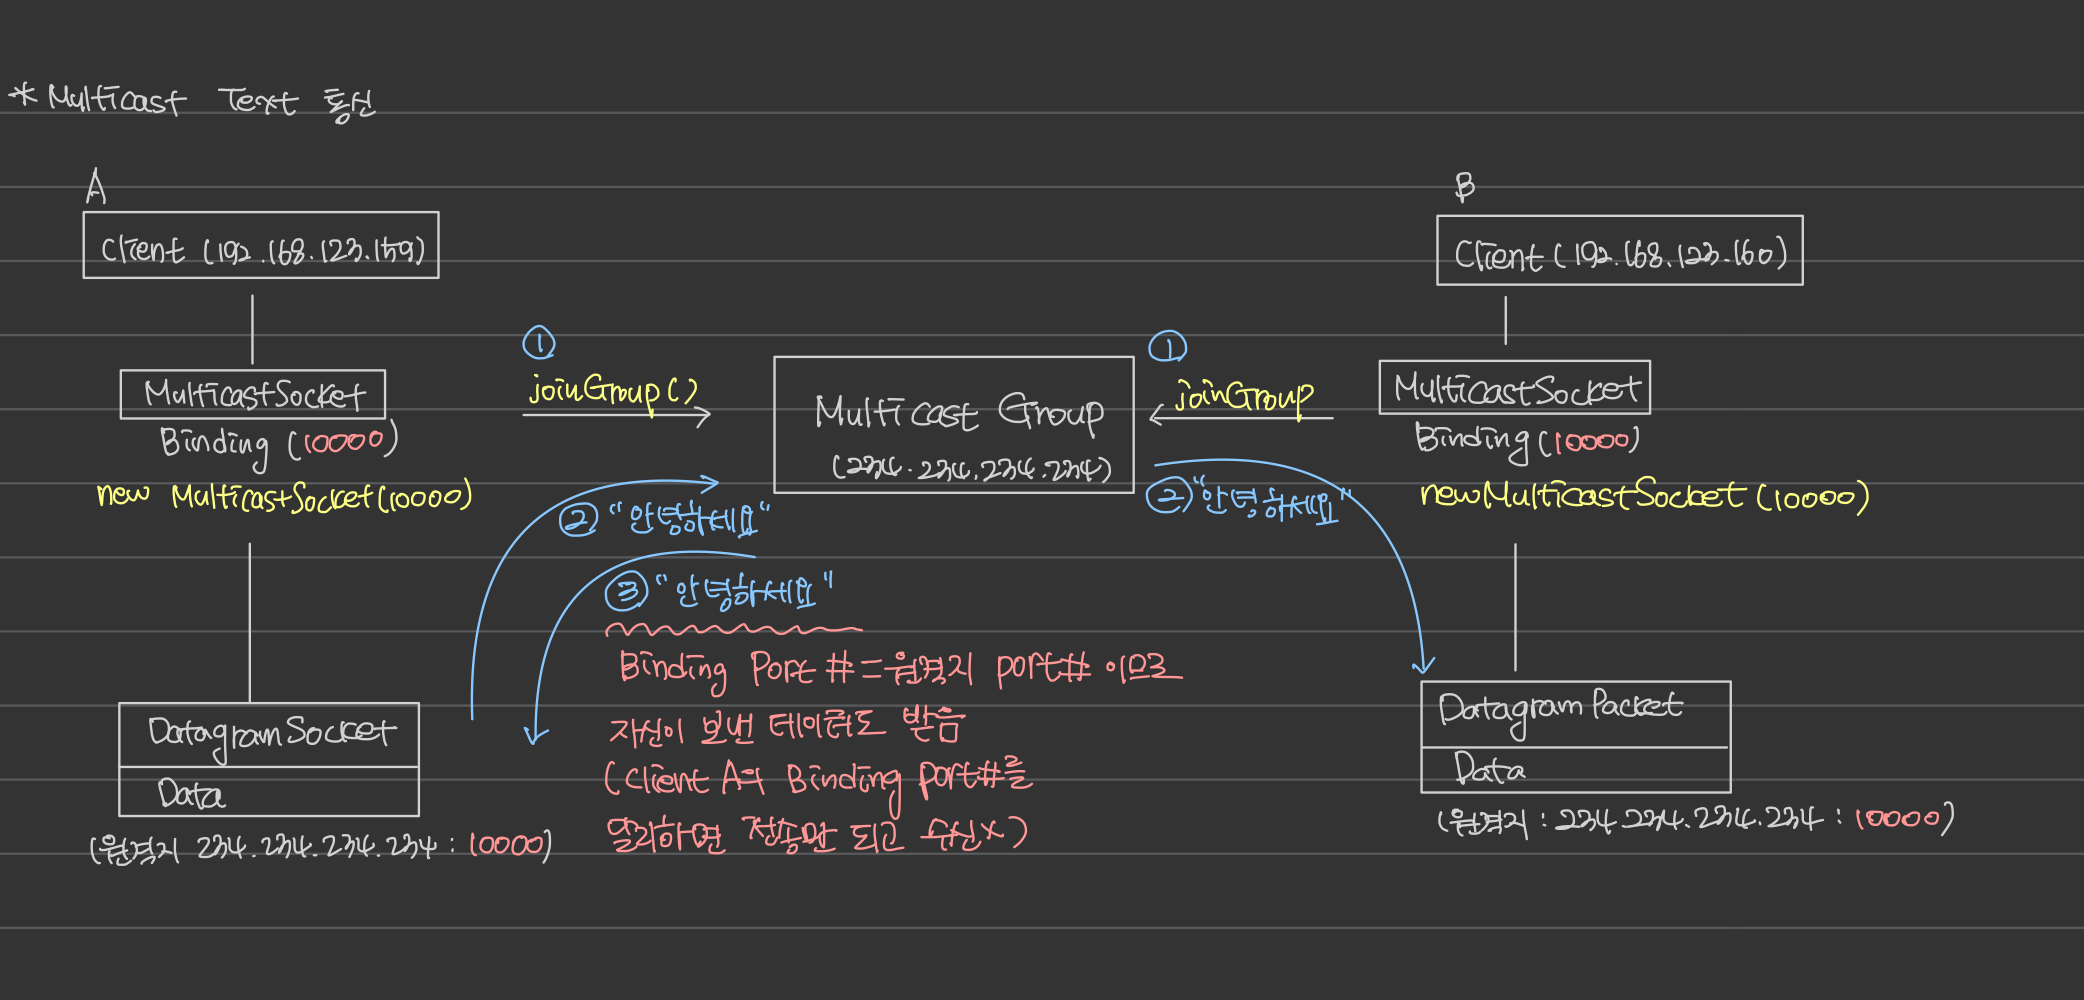 * Multicast Text 통신
A
Client (192.168.123.159)
MulticastSocket
Binding (10000)
new MulticastSocket(10000)
DatagramSocket
Data
(원격지 234.234.234.234 : 10000)
①
joinGroup()
② "안녕하세요"
③ "안녕하세요"
Binding Port # = 원격지 port# 이므로
자신이 보낸 데이터도 받음
(Client A의 Binding port#를
달리하면 전송만 되고 수신x)
Multicast Group
(234.234.234.234)
①
joinGroup
② "안녕하세요"
B
Client (192.168.123.160)
MulticastSocket
Binding (10000)
new MulticastSocket (10000)
Datagram Packet
Data
(원격지 : 234.234.234.234 : 10000)